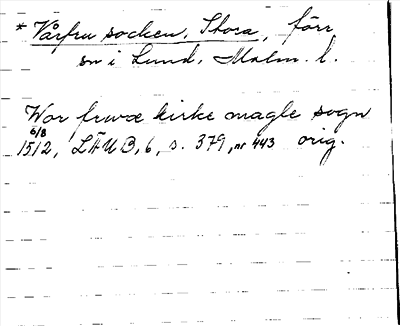 * Vårfru socken, Stora, förr
sn i Lund, Malm. l.
Wor frwæ kirke magle sogn
6/8
1512, LÄUB, 6, s. 379, nr 443 orig.